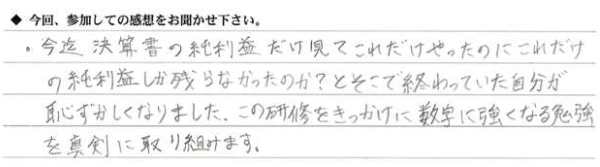 ◆ 今回、参加しての感想をお聞かせ下さい。
・今迄 決算書の純利益だけ見てこれだけやったのにこれだけ
の純利益しか残らなかったのか?とそこで終わっていた自分が
恥ずかしくなりました。この研修をきっかけに数字に強くなる勉強
を真剣に取り組みます。